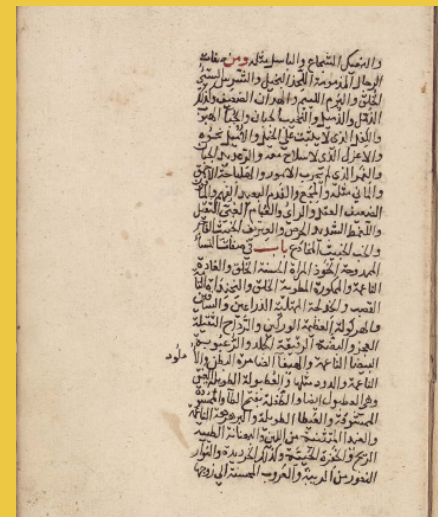 والنهيك الشجاع والباسل مثله ومن صفات
الرجال المذمومة اللحز البخيل والشرس السيئ
الخلق والبرم اللئيم والهدان الضعيف وكذلك
والنخيب الجبان والجبا الهيوب
والكفل الذي لا يثبت على الخيل والاميل نحوه
والاعزل الذي لا سلاح معه والرعديد الجبان
والغمر الذي لم يجرب الامور والهلباجة الاحمق
والمائق مثله والفدم البعيد الفهم
الضعيف العقل والراي والعبام العيي الثقيل
الخبيث الفاجر
والخب الخبيث الخادع باب في صفات النسا
الممدوحة الخود المراة الحسنة الخلق والغادة
الناعمة والممكورة المطوية الخلق
القصب والخدلجة الممتلية الذراعين والساقين
والهركولة العظيمة الوركين والرداح الثقيلة
العجز والبضة الرقيقة الجلد والرعبوبة
البيضا الناعمة والهيفا الضامرة البطن والا
ملود
الناعمة والرود مثلها والعطبولة الطويلة العنق
وهي العطبول ايضا بفتح الطا والممسودة
الممشوقة والعيطا الطويلة والبرهرهة الناعمة
والغيدا المتثنية من اللين والبهنانة الطيبة
الريح والخفرة الحييية وكذلك الخريدة والنوار
النفور من الريبة والعروب المحسنة الى زوجها